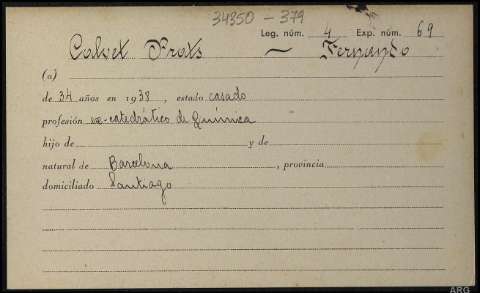 34350-379
Leg. núm. 4 Exp. núm. 69
Calvet Prats ~ Fernando
(a)
de 34 años en 1938, estado casado
profesión ex-catedrático de Química
hijo de y de
natural de Barcelona, provincia
domiciliado Santiago
ARG